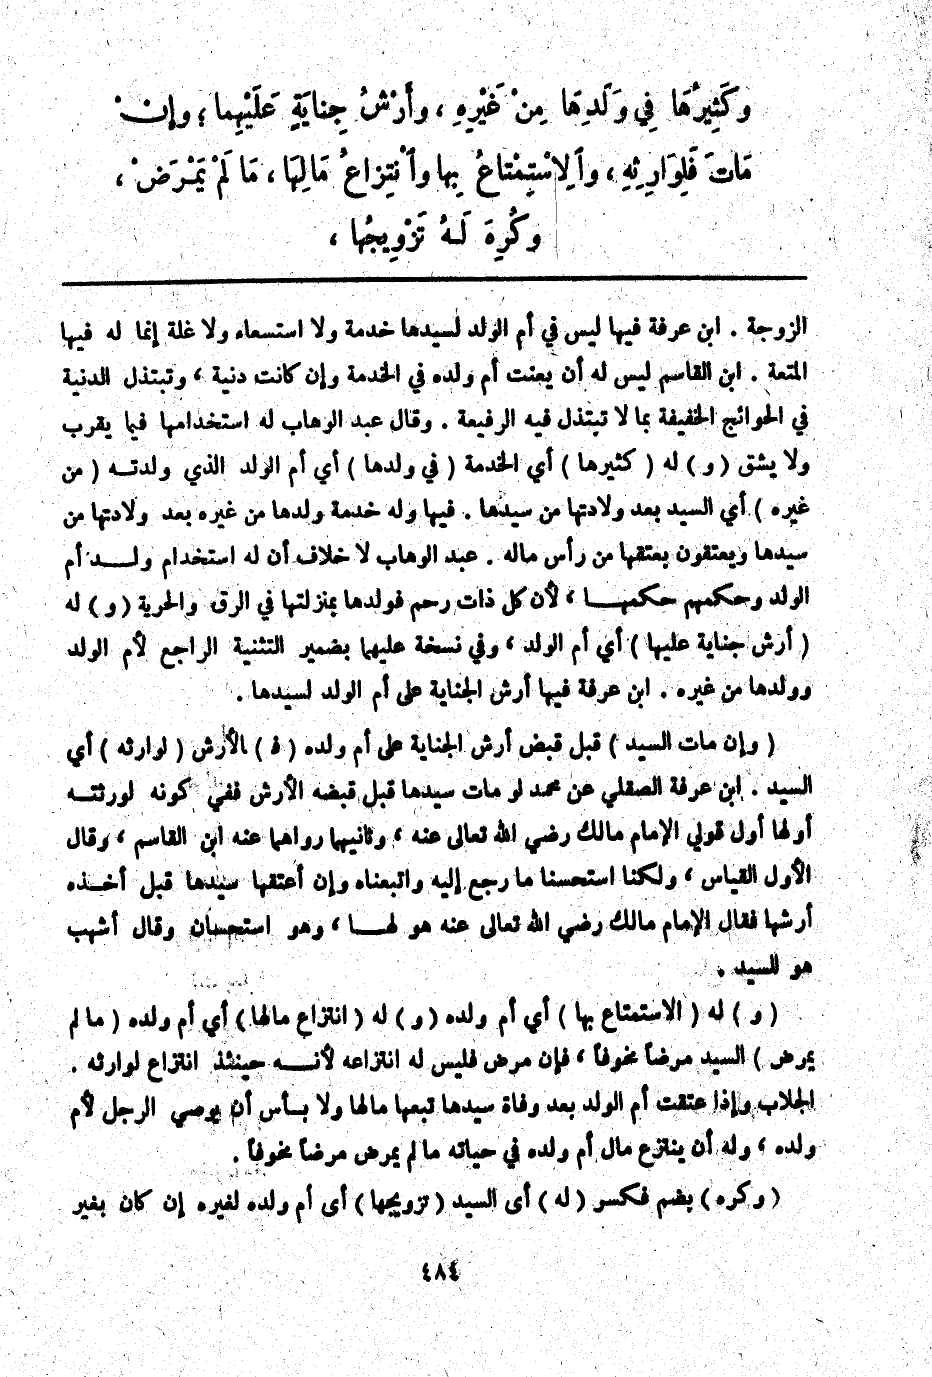 وَكَثِيرُهَا فِي وَلَدِهَا مِنْ غَيْرِهِ ، وَأَرْشُ جِنايَةٍ عَلَيْهِما ؛ وإنْ
مَاتَ فَلِوَارِثِهِ ، وَٱلِاسْتِمْتاعُ بِها وٱنْتِزاعُ مَالِهَا ، مَا لَمْ يَمْرَضْ ،
وكُرِهَ لَهُ تَزْوِيجُها ،
الزوجة . ابن عرفة فيها ليس في أم الولد لسيدها خدمة ولا استسعاء ولا غلة إنما له فيها
المتعة . ابن القاسم ليس له أن يعنت أم ولده في الخدمة وإن كانت دنية ، وتبتذل الدنية
في الحوائج الخفيفة بما لا تبتذل فيه الرفيعة . وقال عبد الوهاب له استخدامها فيما يقرب
ولا يشق ( و ) له ( كثيرها ) أي الخدمة ( في ولدها ) أي أم الولد الذي ولدته ( من
غيره ) أي السيد بعد ولادتها من سيدها . فيها وله خدمة ولدها من غيره بعد ولادتها من
سيدها ويعتقون بعتقها من رأس ماله . عبد الوهاب لا خلاف أن له استخدام ولد أم
الولد وحكمهم حكمها ، لأن كل ذات رحم فولدها بمنزلتها في الرق والحرية ( و ) له
( أرش جناية عليها ) أي أم الولد ، وفي نسخة عليهما بضمير التثنية الراجع لأم الولد
وولدها من غيره . ابن عرفة فيها أرش الجناية على أم الولد لسيدها .
( وإن مات السيد ) قبل قبض أرش الجناية على أم ولده ( ف ) بالأرش ( لوارثه ) أي
السيد . ابن عرفة الصقلي عن محمد لو مات سيدها قبل قبضه الأرش ففي كونه لورثته
أولها أول قولي الإمام مالك رضي الله تعالى عنه ، وثانيهما رواهما عنه ابن القاسم ، وقال
الأول القياس ، ولكنا استحسنا ما رجع إليه واتبعناه وإن أعتقها سيدها قبل أخذه
أرشها فقال الإمام مالك رضي الله تعالى عنه هو لها ، وهو استحسان وقال أشهب
هو للسيد .
( و ) له ( الاستمتاع بها ) أي أم ولده ( و ) له ( انتزاع مالها ) أي أم ولده ( ما لم
يمرض ) السيد مرضاً مخوفاً ، فإن مرض فليس له انتزاعه لأنه حينئذ انتزاع لوارثه .
الجلاب وإذا عتقت أم الولد بعد وفاة سيدها تبعها مالها ولا بأس أن يوصي الرجل لأم
ولده ، وله أن ينتزع مال أم ولده في حياته ما لم يمرض مرضاً مخوفاً .
( وكره ) بضم فكسر ( له ) أى السيد ( تزويجها ) أى أم ولده لغيره إن كان بغير
٤٨٤